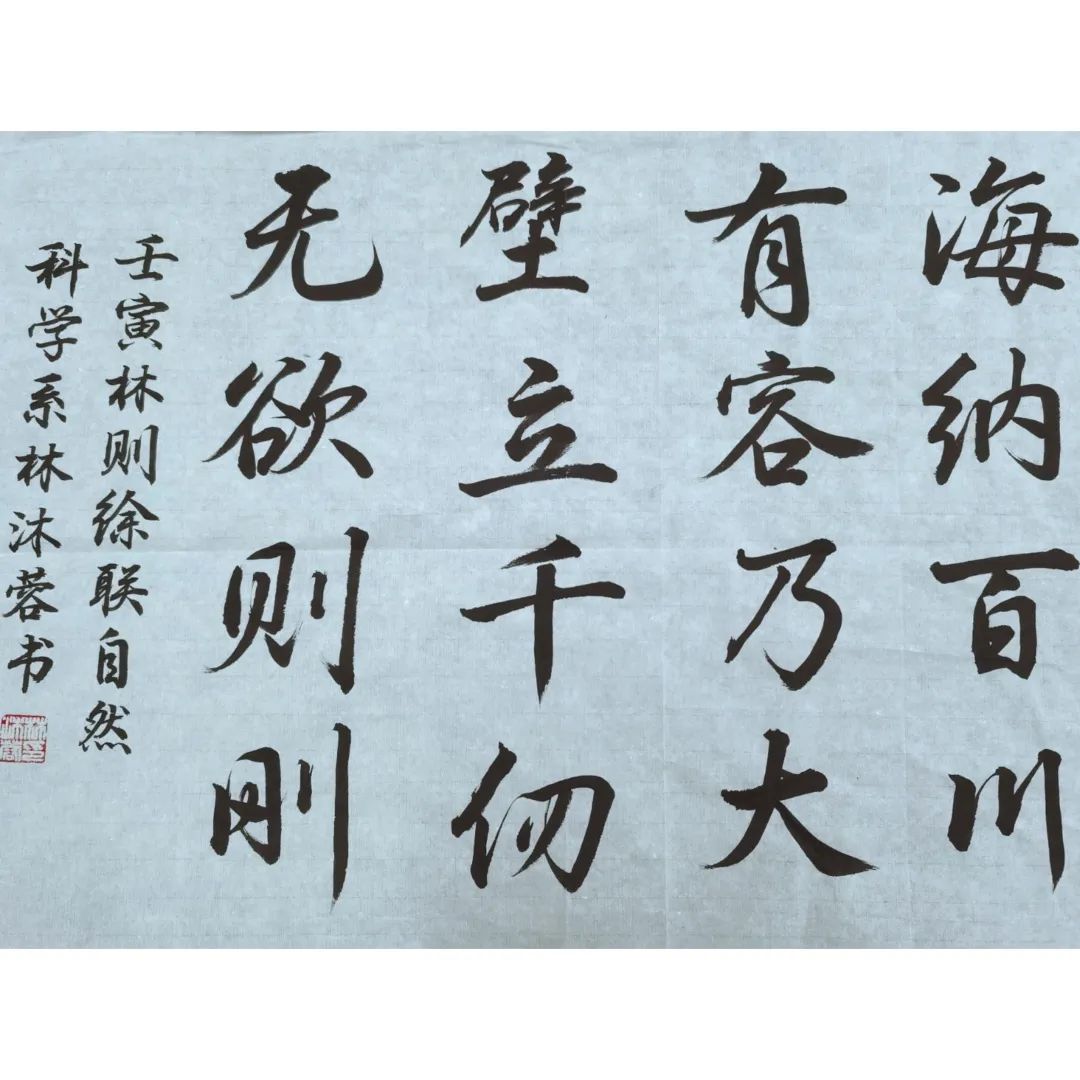 海纳百川
有容乃大
壁立千仞
无欲则刚
壬寅林则徐联自然
科学系林沐蓉书